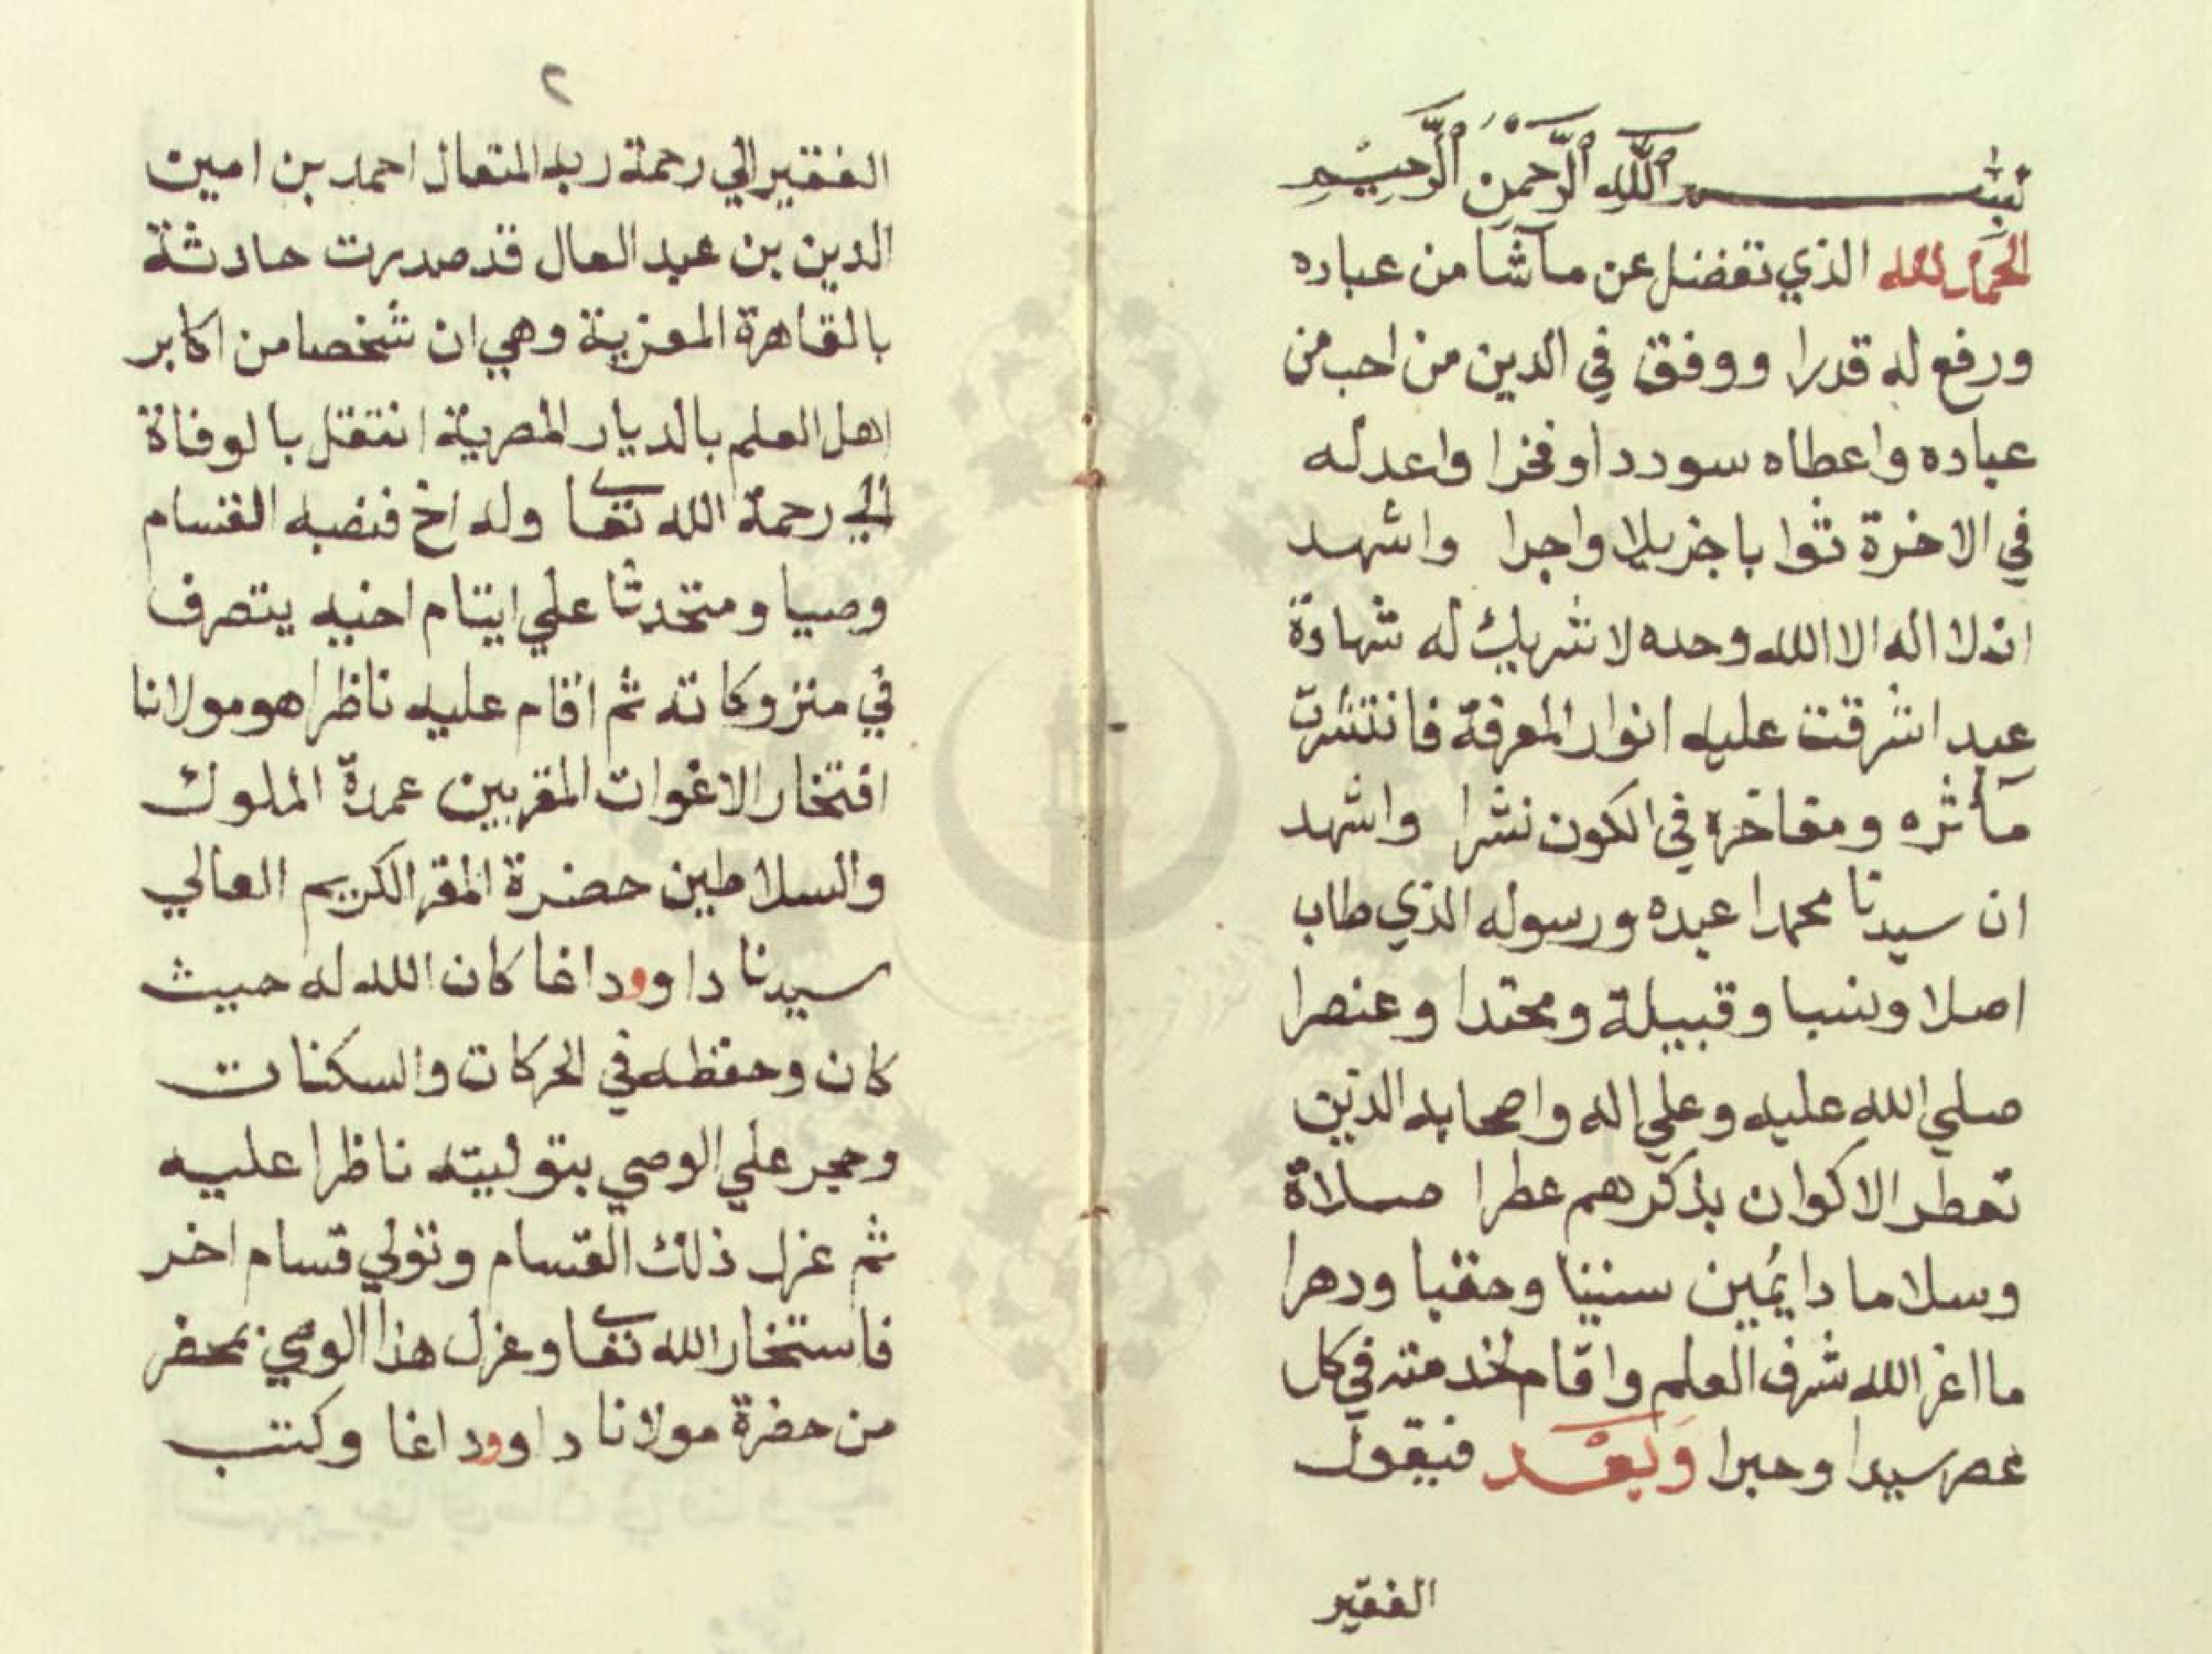 بسم الله الرحمن الرحيم
الحمد لله الذي تفضل عن ماشا من عباده
ورفع له قدرا ووفق في الدين من احب من
عباده واعطاه سوددا وفخرا واعد له
في الاخرة ثوابا جزيلا واجرا واشهد
ان لا اله الا الله وحده لا شريك له شهادة
عبد اشرقت عليه انوار المعرفة فانتشرت
مآثره ومفاخره في الكون نشرا واشهد
ان سيدنا محمدا عبده ورسوله الذي طاب
اصلا ونسبا وقبيلة ومحتدا وعنصرا
صلي الله عليه وعلي اله واصحابه الذين
تعطر الاكوان بذكرهم عطرا صلاة
وسلاما دايمين سنينا وحقبا ودهرا
ما اعز الله شرف العلم واقام لخدمته في كل
عصر سيدا وحبرا وبعد فيقول
الفقير
٢
الفقير الي رحمة ربه المتعال احمد بن امين
الدين بن عبد العال قد صدرت حادثة
بالقاهرة المعزية وهي ان شخصا من اكابر
اهل العلم بالديار المصرية انتقل بالوفاة
الي رحمة الله تعا وله اخ فنصبه القسام
وصيا ومتحدثا علي ايتام اخيه يتصرف
في متروكاته ثم اقام عليه ناظرا هو مولانا
افتخار الاغوات المقربين عمدة الملوك
والسلاطين حضرة المقر الكريم العالي
سيدنا داوود اغا كان الله له حيث
كان وحفظه في الحركات والسكنات
وحجر علي الوصي بتوليته ناظرا عليه
ثم عزل ذلك القسام وتولي قسام اخر
فاستخار الله تعا وعزل هذا الوصي بمحضر
من حضرة مولانا داوود اغا وكتب